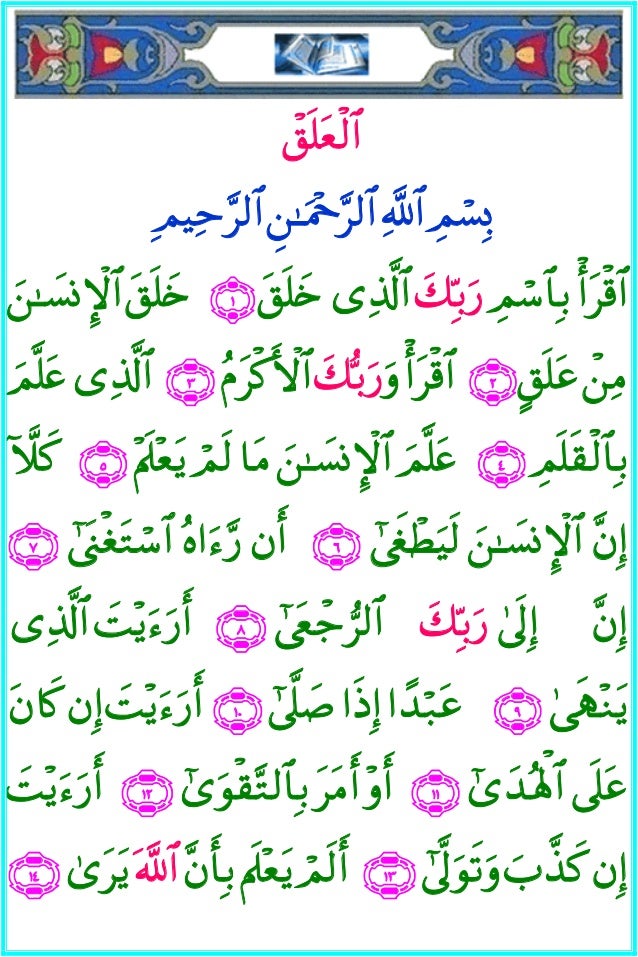 ٱلْعَلَقْ
بِسْمِ ٱللَّهِ ٱلرَّحْمَـٰنِ ٱلرَّحِيمِ
ٱقْرَأْ بِٱسْمِ رَبِّكَ ٱلَّذِى خَلَقَ ١ خَلَقَ ٱلْإِنسَـٰنَ
مِنْ عَلَقٍ ٢ ٱقْرَأْ وَرَبُّكَ ٱلْأَكْرَمُ ٣ ٱلَّذِى عَلَّمَ
بِٱلْقَلَمِ ٤ عَلَّمَ ٱلْإِنسَـٰنَ مَا لَمْ يَعْلَمْ ٥ كَلَّآ
إِنَّ ٱلْإِنسَـٰنَ لَيَطْغَىٰٓ ٦ أَن رَّءَاهُ ٱسْتَغْنَىٰٓ ٧
إِنَّ إِلَىٰ رَبِّكَ ٱلرُّجْعَىٰٓ ٨ أَرَءَيْتَ ٱلَّذِى
يَنْهَىٰ ٩ عَبْدًا إِذَا صَلَّىٰٓ ١٠ أَرَءَيْتَ إِن كَانَ
عَلَى ٱلْهُدَىٰٓ ١١ أَوْ أَمَرَ بِٱلتَّقْوَىٰٓ ١٢ أَرَءَيْتَ
إِن كَذَّبَ وَتَوَلَّىٰٓ ١٣ أَلَمْ يَعْلَم بِأَنَّ ٱللَّهَ يَرَىٰ ١٤